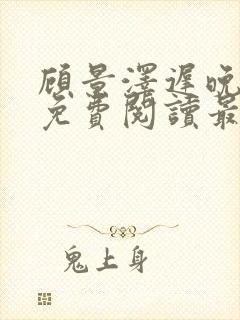 顾景澤遲晚
免費閱讀最
鬼上身